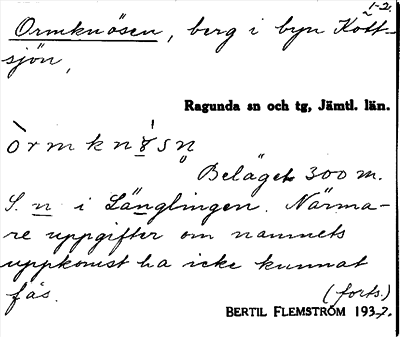 1-2.
Ormknösen, berg i byn Kott-
sjön,
Ragunda sn och tg, Jämtl. län.
Beläget 300 m.
S. n i Länglingen. Närma-
re uppgifter om namnets
uppkomst ha icke kunnat
fås. (forts.)
BERTIL FLEMSTRÖM 1937.